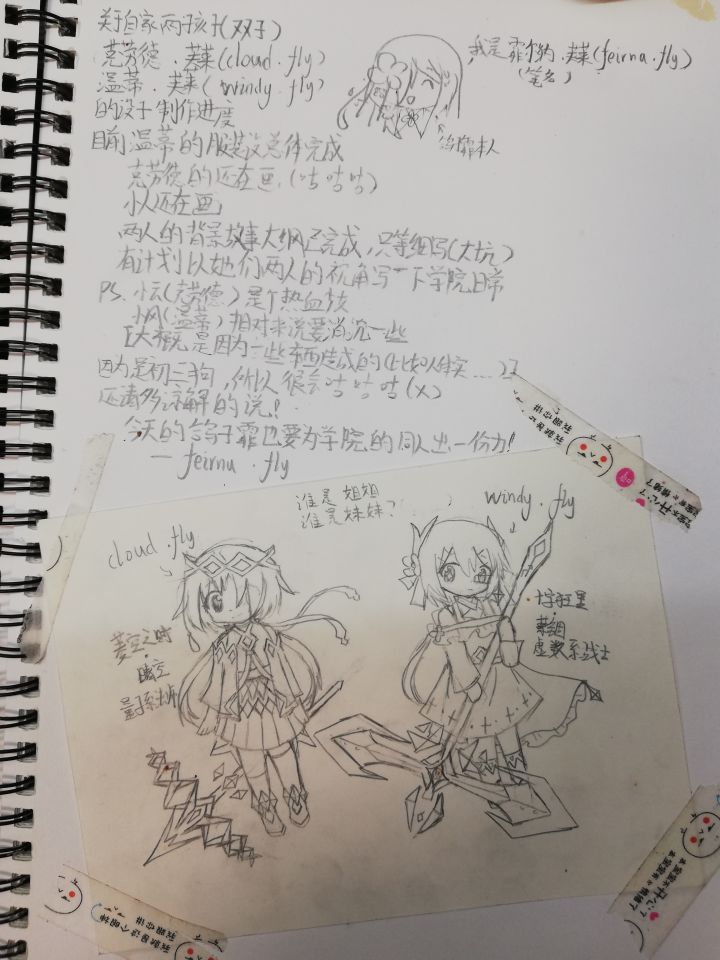 关于自家两孩子(双子)
克劳德·芙莱(cloud·fly)
温蒂·芙莱(windy·fly)
的设子制作进度
目前温蒂的服装设总体完成
克劳德的还在画.(咕咕咕)
小人还在画
两人的背景故事大纲已完成,只等细写(大坑)
有计划以她们两人的视角写一下学院日常
PS.小云(克劳德)是个热血孩
小风(温蒂)相对来说要消沉一些
[大概是因为一些东西造成的(比如人体实……)]
因为是初三狗,所以很会咕咕咕(X)
还请多谅解的说!
今天的鸽子霏也要为学院的同人出一份力!
— feirna·fly
我是霏尔纳·芙莱(feirna·fly)
(笔名)
本人
谁是姐姐
谁是妹妹?
cloud·fly
windy·fly
十字虹星
虚数系战士
我就是这个眼神
我跟你讲